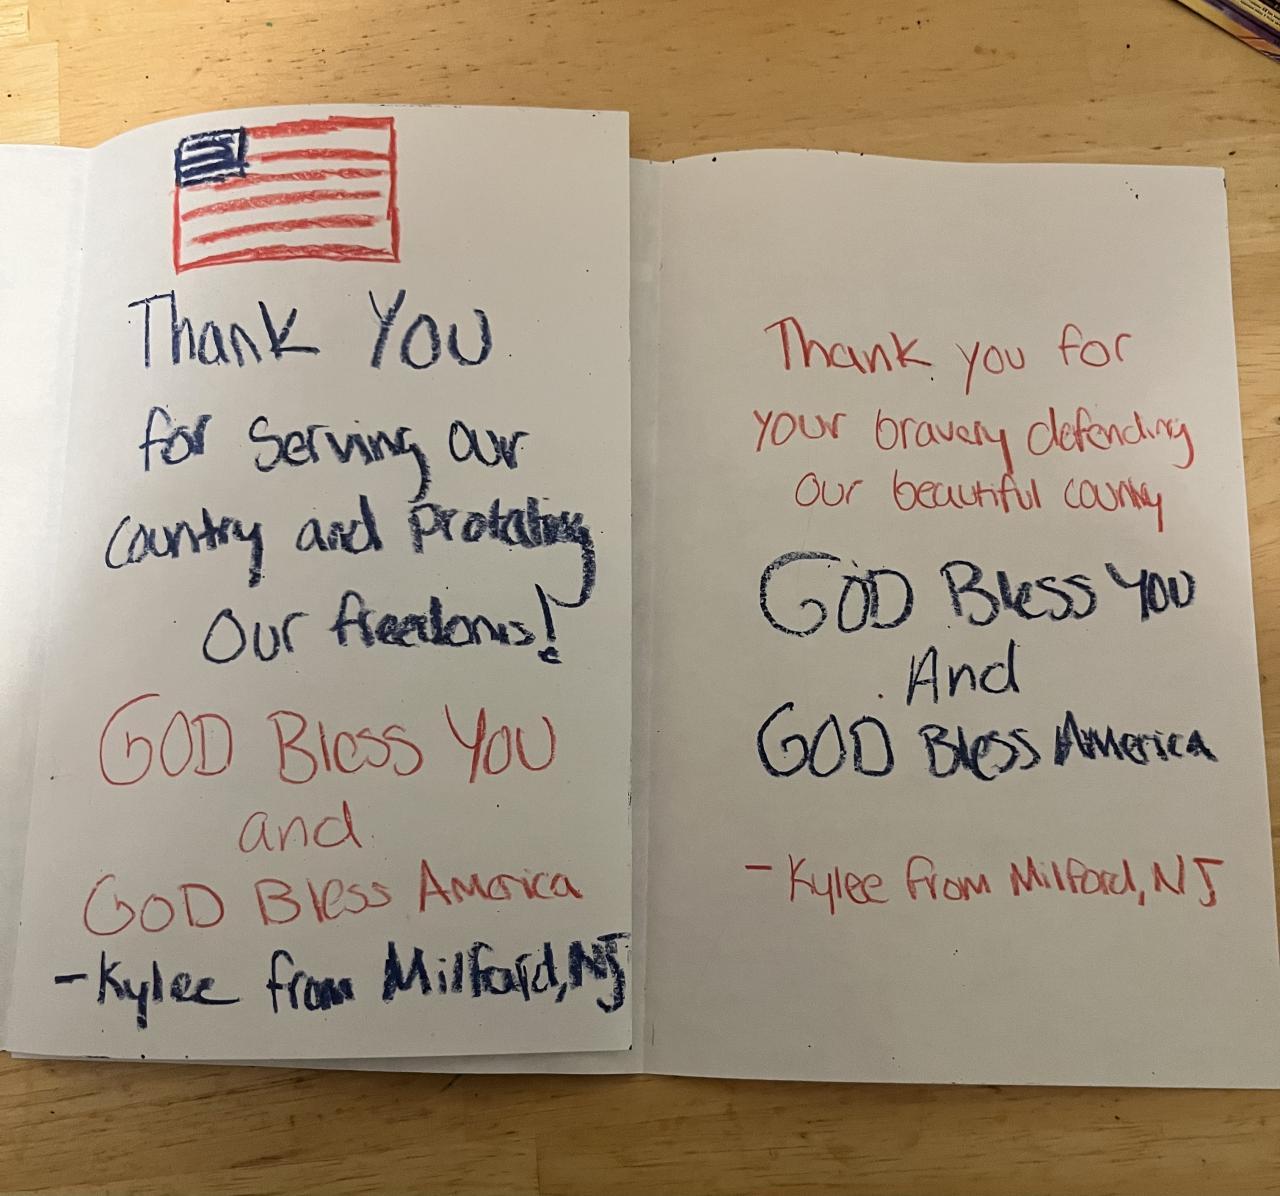 Thank You
for serving our
country and protating
our freedoms!
GOD Bless You
and
GOD Bless America
- Kylee from Milford, NJ
Thank you for
your bravery defending
our beautiful country
GOD Bless You
And
GOD Bless America
- Kylee from Milford, NJ